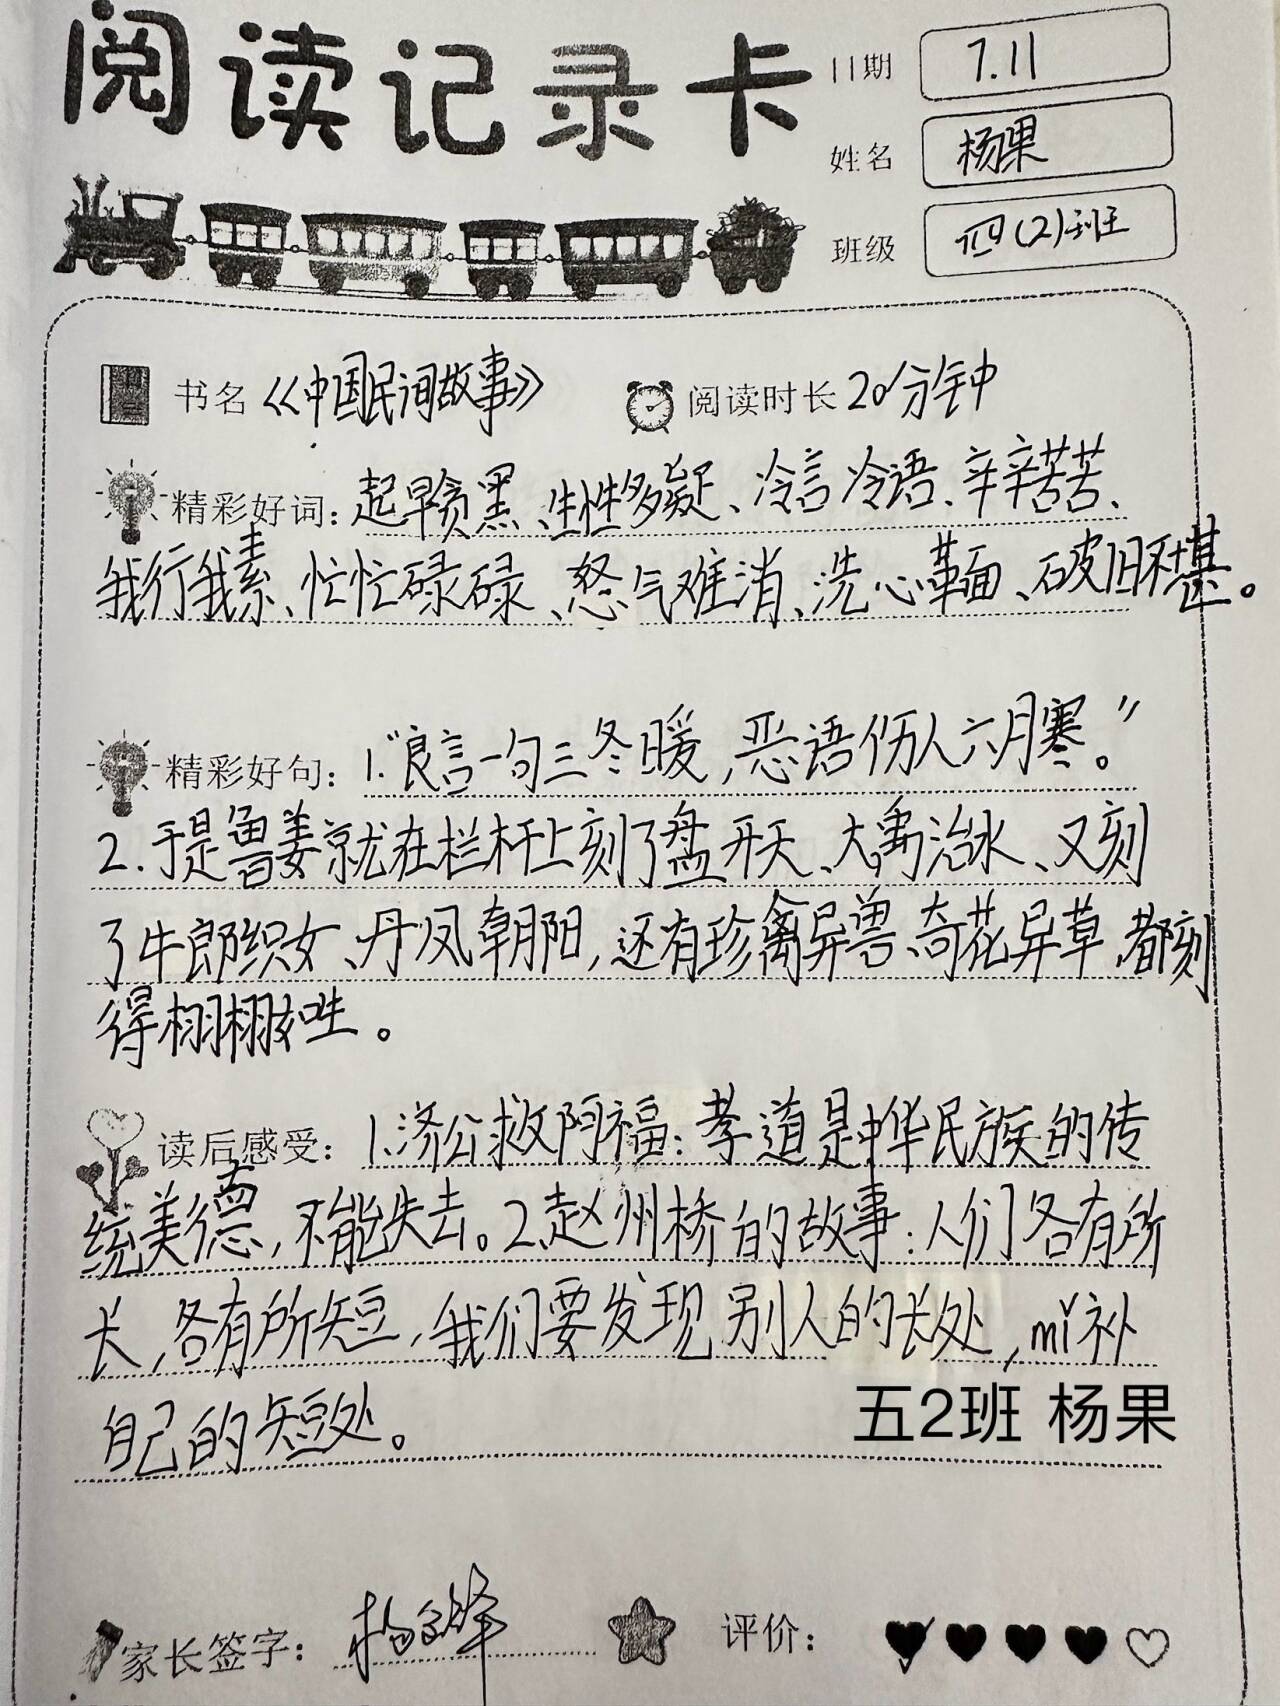 阅读记录卡
日期 7.11
姓名 杨果
班级 四(2)班
书名《中国民间故事》 阅读时长20分钟
精彩好词:起早贪黑、生性多疑、冷言冷语、辛辛苦苦、
我行我素、忙忙碌碌、怒气难消、洗心革面、破旧不堪。
精彩好句:1.“良言一句三冬暖,恶语伤人六月寒。”
2.于是鲁姜就在栏杆上刻了盘开天、大禹治水、又刻
了牛郎织女、丹凤朝阳,还有珍禽异兽、奇花异草,都刻
得栩栩如生。
读后感受:1.济公救阴福:孝道是中华民族的传
统美德,不能失去。2.赵州桥的故事:人们各有所
长,各有所短,我们要发现别人的长处,mí补
自己的短处。
五2班 杨果
家长签字: 评价: